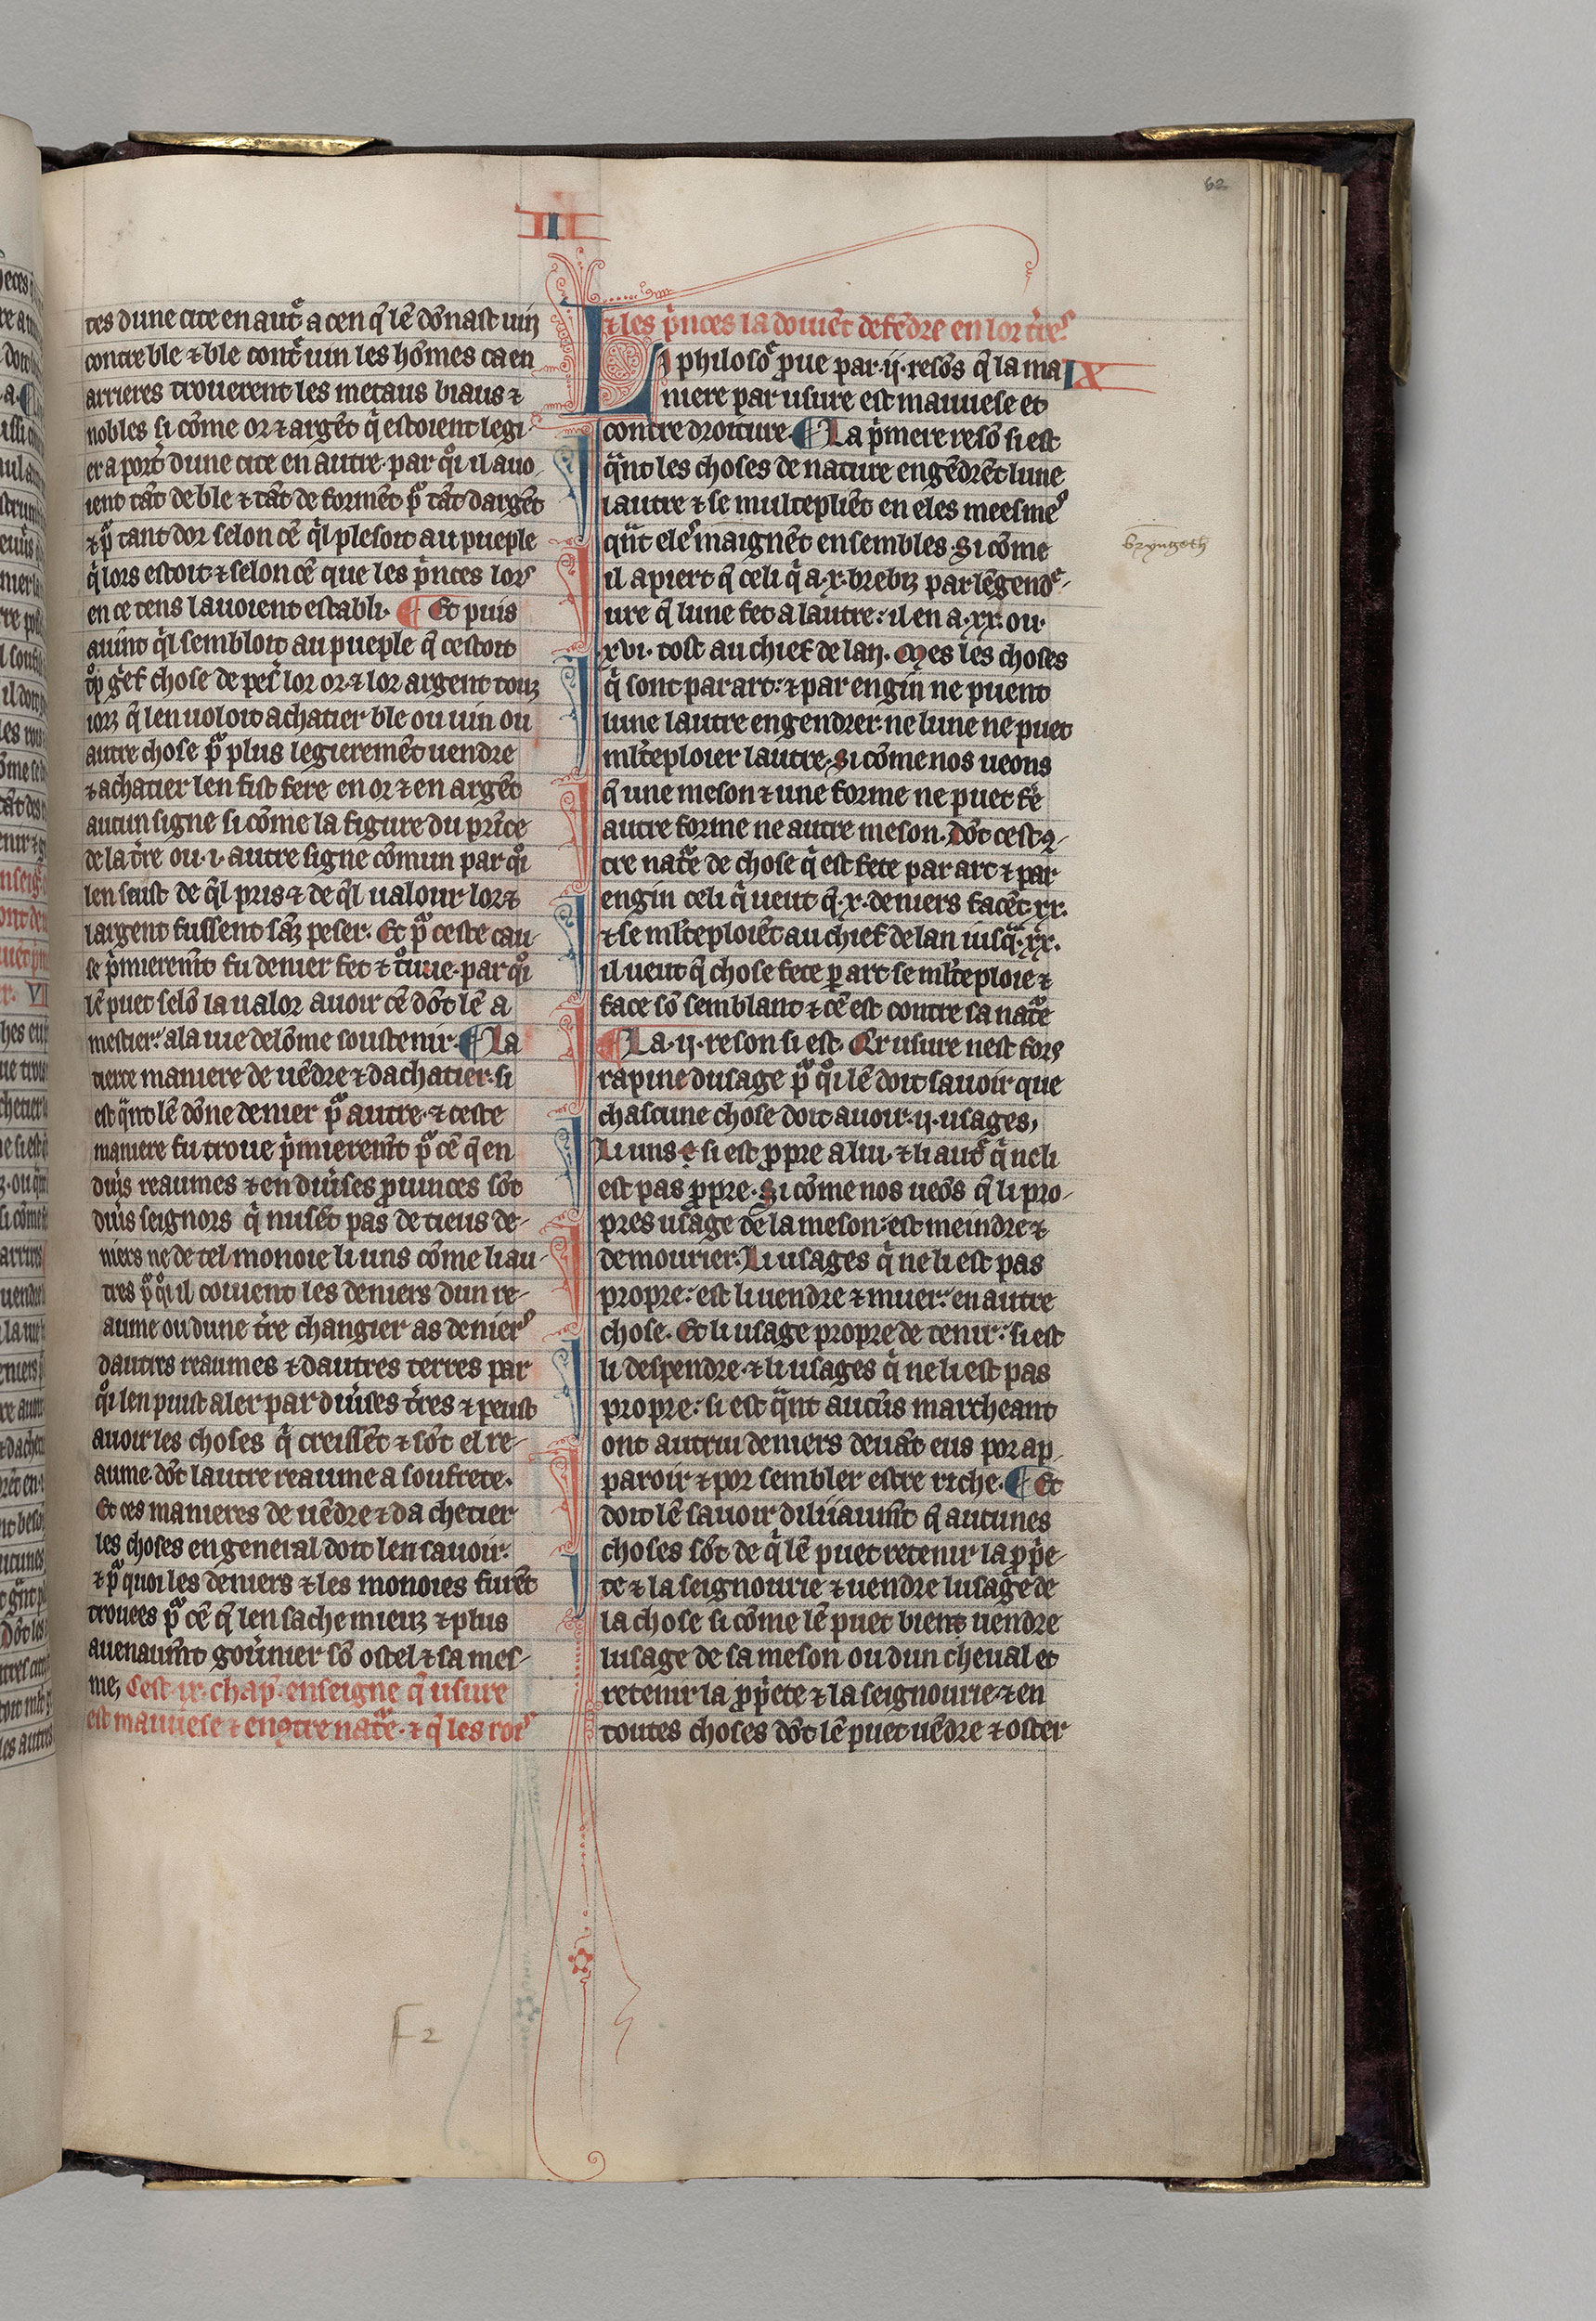 62
III
tes dune cite en autͤ a cen q̄ lē dōnast uin
contre ble ⁊ ble cont̾ uin les hōmes ca en
arrieres trouerent les metaus biaus ⁊
nobles si cōme or ⁊ argēt qͥ estoient legi-
er a port̾ dune cite en autre. par qͦi il auo
ient tāt de ble ⁊ tāt de formēt pͬ tāt dargēt
⁊ pͬ tant dor selon cē qͥl plesoit au pueple
qͥ lors estoit ⁊ selon cē que les pͥnces lors
en ce tens lauoient establi. ¶ Et puis
auint qͥl sembloit au pueple q̄ cestoit
gͥef chose de pes̾ lor or ⁊ lor argent touz
iorz q̄ len uoloit achatier ble ou uin ou
autre chose pͬ plus legieremēt uendre
⁊ achatier len fist fere en or ⁊ en argēt
aucun signe si cōme la figure du prīce
de la t̾re ou .i. autre signe cōmun par qͦi
len seust de q̄l pris ⁊ de q̄l ualour lor ⁊
largent fussent sāz peser. Et pͬ ceste cau-
se pͥmieremt̄ fu denier fet ⁊ tͦuue. par qͦi
lē puet selō la ualor auoir cē dōt lē a
mestier: a la uie delōme soustenir. ¶ La
tierce maniere de uēdre ⁊ dachatier. si
est qͣnt lē dōne denier pͬ autre. ⁊ ceste
maniere fu troue pͥmieremt̄ pͬ cē q̄ en
diu̾s reaumes ⁊ en diu̾ses prouinces sōt
diu̾s seignors qͥ nusēt pas de tieus de-
niers ne de tel monoie li uns cōme li au-
tres pͬ qͦi il couient les deniers dun re-
aume ou dune t̾re changier as deniers
dautrs reaumes ⁊ dautres terres par
qͦi len puist aler par diu̾ses t̾res ⁊ peust
auoir les choses qͥ creissēt ⁊ sōt el re-
aume. dōt lautre reaume a soufrete.
Et ces manieres de uēdre ⁊ da chetier
les choses en general doit len sauoir:
⁊ pͬ quoi les deniers ⁊ les monoies furēt
trouees pͬ cē q̄ len sache mieuz ⁊ plus
auenaumt̄ gou̾nier sō ostel ⁊ sa mes-
nie, Cest .ix. chap̄. enseigne q̄ usure
est mauuese ⁊ encōtre natͬe. ⁊ q̄ les rois
⁊ les pͥnces la doiuēt defēdre en lor t̾res
Li philosoͤ prue par .ij. resōs q̄ la ma
IX
niere par usure est mauuese et
contre droiture. ¶ La pͥmere resō si est
qͣnt les choses de nature engēdrēt lune
lautre ⁊ se multepliēt en eles meesmes
qͣnt eles maignēt ensembles. Si cōme
bryngeth
il apiert q̄ celi qͥ a .x. brebiz par lēgend͛-
ure q̄ lune fet a lautre: il en a .xx. ou
.xvi. tost au chief de lan. Mes les choses
qͥ sont par art: ⁊ par engin ne puent
lune lautre engendrer: ne lune ne puet
ml̄teploier lautre. Si cōme nos ueons
q̄ une meson ⁊ une forme ne puet fe̾
autre forme ne autre meson. Dōt cest ꝯ-
tre natͬe de chose qͥ est fete par art ⁊ par
engin celi qͥ ueut q̄ .x. deniers facēt .xx.
⁊ se ml̄teploiēt au chief de lan iusqͣ .xx.
il ueut q̄ chose fete ꝑ art se ml̄teploie ⁊
face sō semblant ⁊ cē est contre sa natͬe
¶ La .ij. reson si est. Qr usure nest fors
rapine dusage pͬ qͦi lē doit sauoir que
chascune chose doit auoir .ij. usages,
Li uns e si est ꝓpre a lui. ⁊ li autͤ qͥ ne li
est pas ꝓpre. Si cōme nos ueōs q̄ li pro-
pres usage de la meson: est meindre ⁊
demourier. Li usages qͥ ne li est pas
propre: est li uendre ⁊ muer: en autre
chose. Et li usage propre de tenir: si est
li despendre. ⁊ li usages qͥ ne li est pas
propre: si est qͣnt aucūs marcheant
ont autrui deniers deuāt eus por ap-
paroir ⁊ por sembler estre riche. ¶ Et
doit lē sauoir diliiaumt̄ q̄ aucunes
choses sōt de qͥ lē puet retenir la ꝓpͥe-
te ⁊ la seignourie ⁊ uendre lusage de
la chose si cōme lē puet bien uendre
lusage de sa meson ou dun cheual et
retenir la ꝓpͥete ⁊ la seignourie ⁊ en
toutes choses dōt lē puet uēdre ⁊ oster
f 2